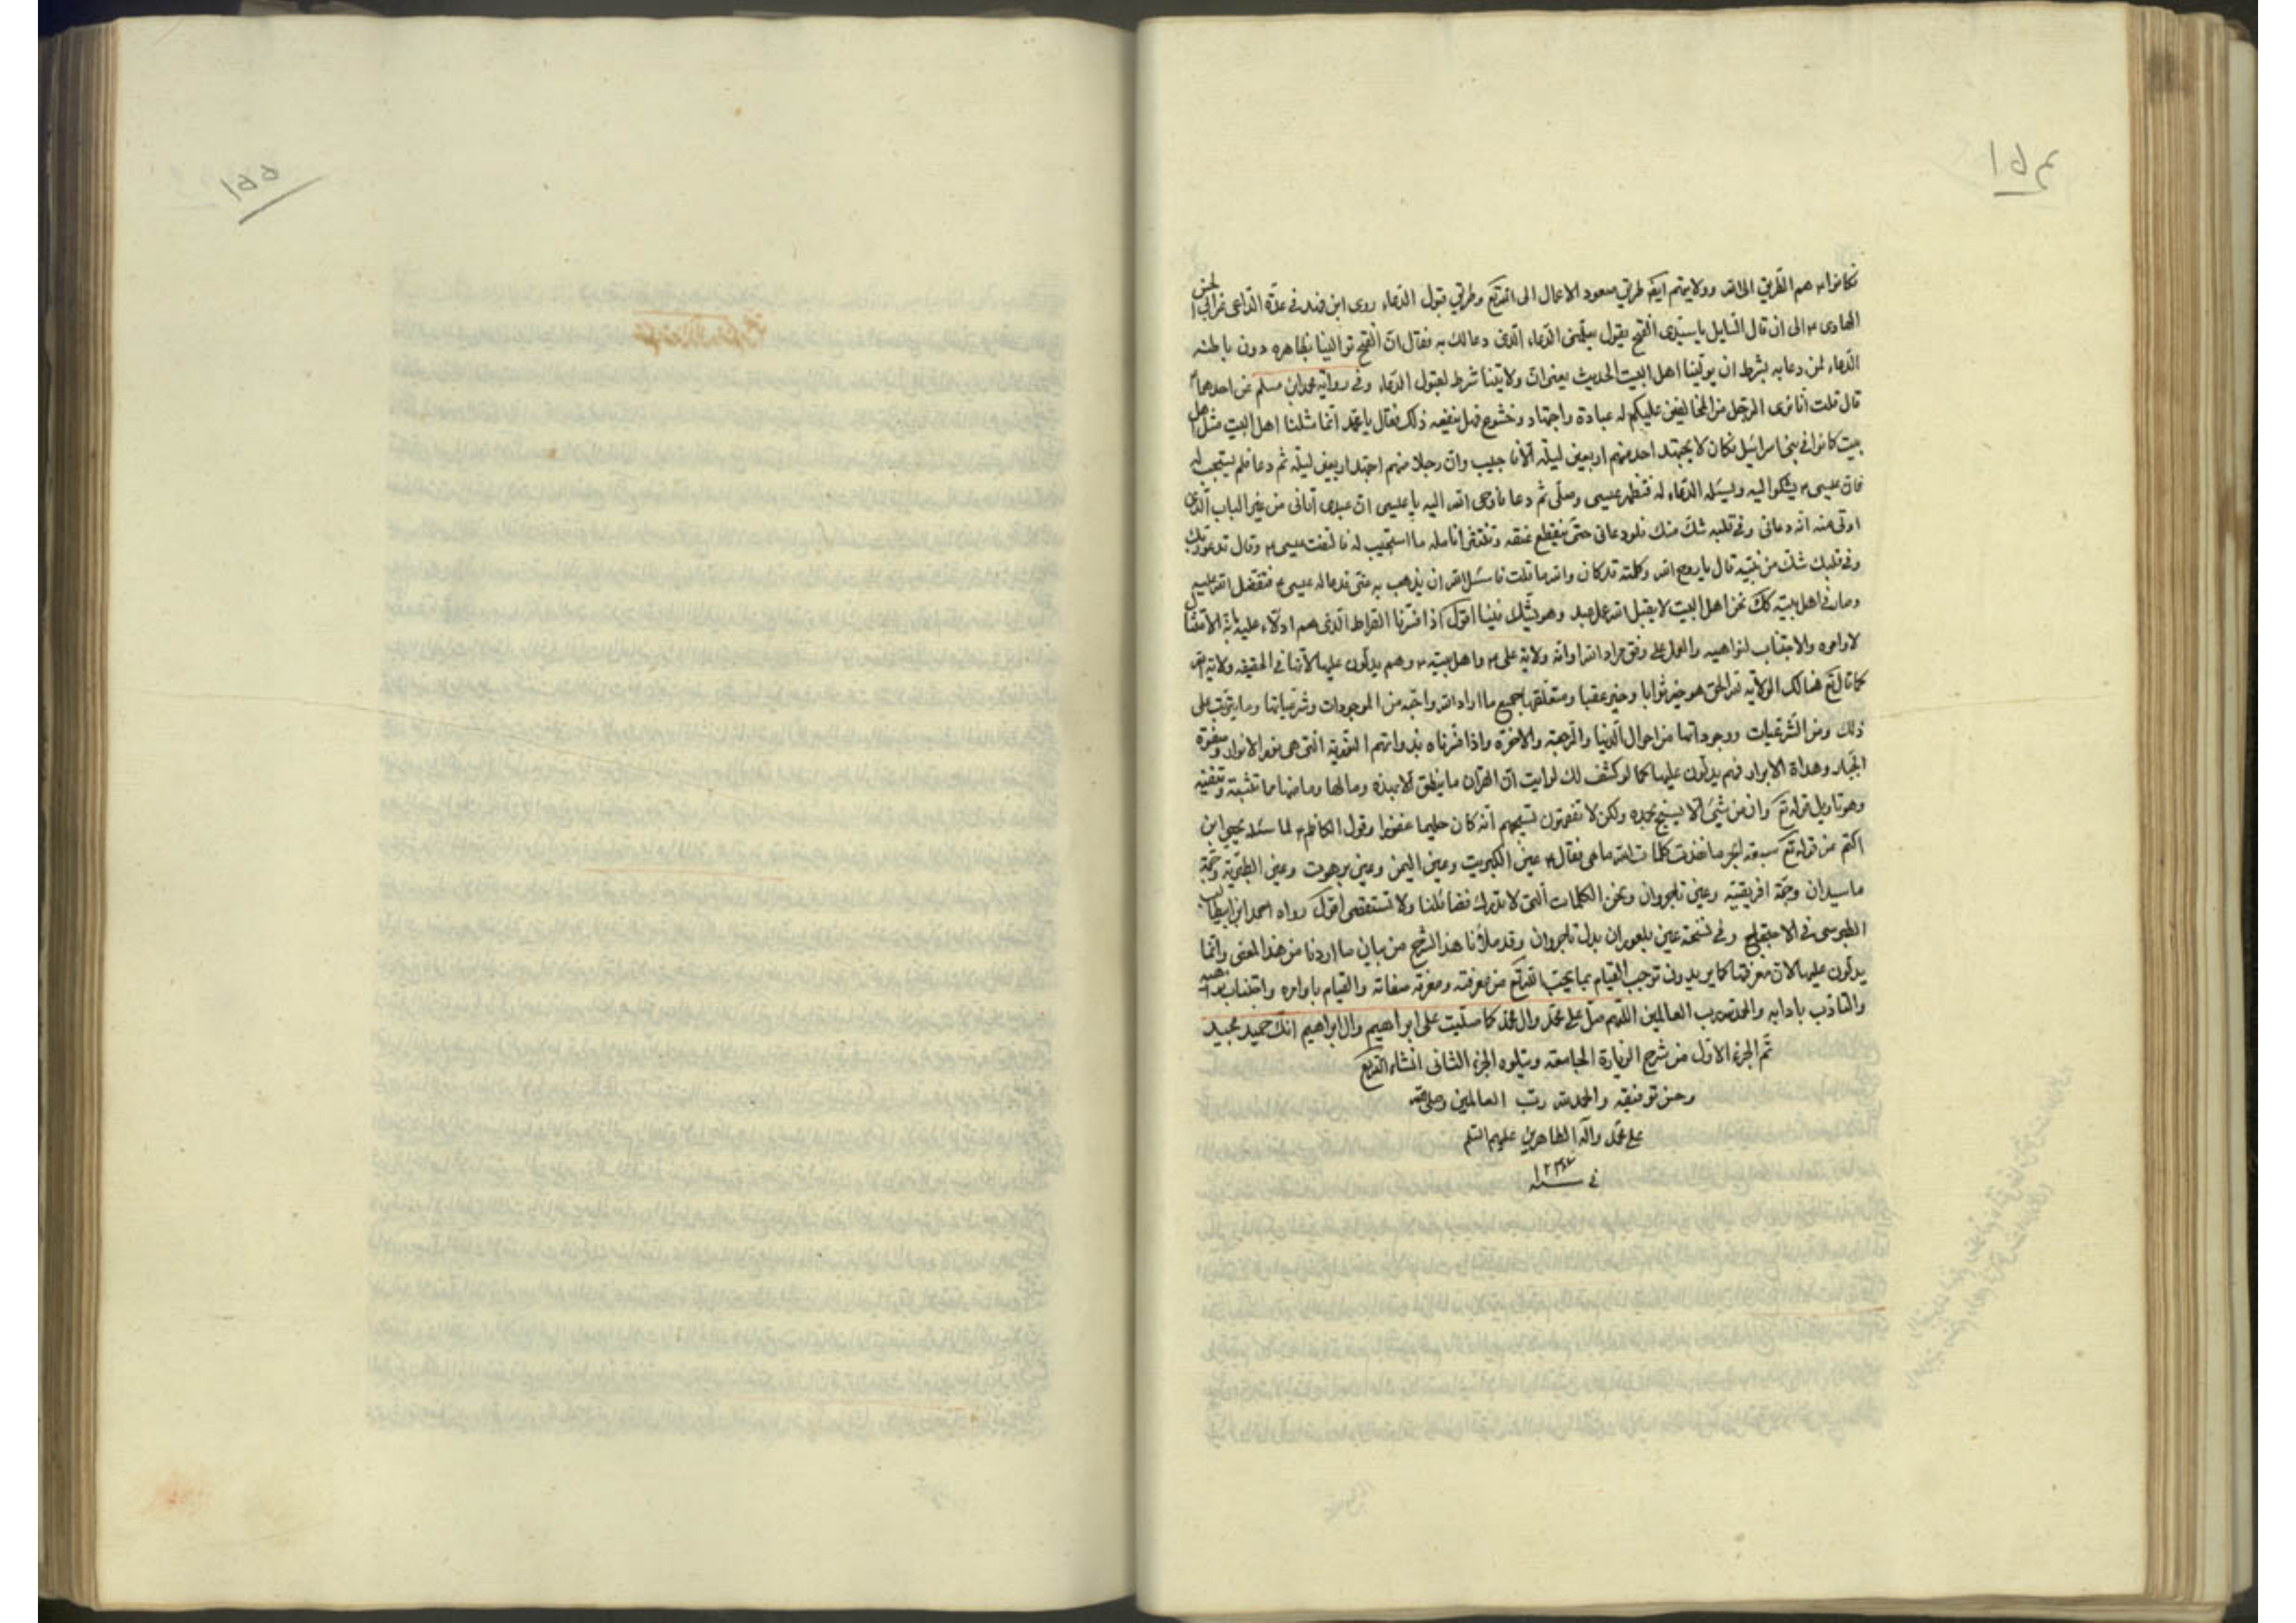 ١٥٤
فكانوا هم الطريق الى الله وولايتهم ايضا طريق صعود الاعمال الى الله تع وطريق قبول الدعاء روى ابن فهد في عدة الداعى عن ابى الحسن
الهادى ع الى ان قال السايل يا سيدى الفتح يقول يعلمنى الدعاء الذى دعا لك به فقال ان الفتح يوالينا بظاهره دون باطنه
الدعاء لمن دعا به بشرط ان يوالينا اهل البيت الحديث يعنى ان ولايتنا شرط لقبول الدعاء وفى رواية محمد ابن مسلم عن احدهما ع
قال قلت انا نرى الرجل من المخالفين عليكم له عبادة واجتهاد وخشوع فهل ينفعه ذلك فقال يا محمد انما مثلنا اهل البيت مثل اهل
بيت كانوا فى بنى اسرائيل فكان لا يجتهد احد منهم اربعين ليلة الا دعا فاجيب وان رجلا منهم اجتهد اربعين ليلة ثم دعا فلم يستجب له
فاتى عيسى ع يشكو اليه ويسئله الدعاء له فتطهر عيسى وصلى ثم دعا فاوحى الله اليه يا عيسى ان عبدى اتانى من غير الباب الذى
اوتى منه انه دعانى وفى قلبه شك منك فلو دعانى حتى ينقطع عنقه وتنتثر انامله ما استجيب له فالتفت عيسى ع وقال تدعو ربك
وفى قلبك شك من نبيه قال يا روح الله وكلمته قد كان والله ما قلت فاسئل الله ان يذهب به عنى فدعا له عيسى ع فتفضل الله عليه
وصار فى اهل بيته كك نحن اهل البيت لا يقبل الله عمل عبد وهو يشك فينا اقول اذا فسرنا الصراط الذى هم ادلاء عليه بانه الامتثال
لاوامره والاجتناب لنواهيه والعمل على وفق مراد الله او انه ولاية على ع واهل بيته ع وهم يدلون عليها لانها فى الحقيقه ولاية الله
كما قال تع هنالك الولاية لله الحق هو خير ثوابا وخير عقبا ومتعلقها جميع ما اراد الله واحبه من الموجودات وشرعياتها وما يترتب على
ذلك ومن الشرعيات ووجوداتها من احوال الدنيا والرجعة والاخرة واذا فسرناه بذواتهم النورية التى هى نور الانوار وصفوة
الجبار وهداة الابرار فهم يدلون عليها كما لو كشف لك لرايت ان القران ما ينطق الا بهذه وما لها وما منها ما تثبته وتنفيه
وهو تاويل قوله تع وان من شىء الا يسبح بحمده ولكن لا تفقهون تسبيحهم انه كان حليما غفورا وقول الكاظم ع لما سئله يحيى ابن
اكثم عن قوله تع سبعة ابحر ما نفدت كلمات الله ما هى فقال ع عين الكبريت وعين اليمن وعين برهوت وعين الطبرية وحمة
ماسيدان وحمة افريقيه وعين ناجروان ونحن الكلمات التى لا تدرك فضائلنا ولا تستقصى اقول رواه احمد ابن ابيطالب
الطبرسى فى الاحتجاج وفى نسخة عين بلعوران بدل ناجروان وقد ملأنا هذا الشرح من بيان ما اردنا من هذا المعنى وانما
يدلون عليها لان معرفتها كما يريدون توجب القيام بما يحب الله تع من معرفته ومعرفة صفاته والقيام باوامره واجتناب نواهيه
والتادب بادابه والحمد لله رب العالمين اللهم صل على محمد وال محمد كما صليت على ابراهيم وال ابراهيم انك حميد مجيد
تم الجزء الاول من شرح الزيارة الجامعه ويتلوه الجزء الثانى انشاء الله تع
وحسن توفيقه والحمد لله رب العالمين وصلى الله
على محمد واله الطاهرين عليهم السلم
فى سنه
١٥٥